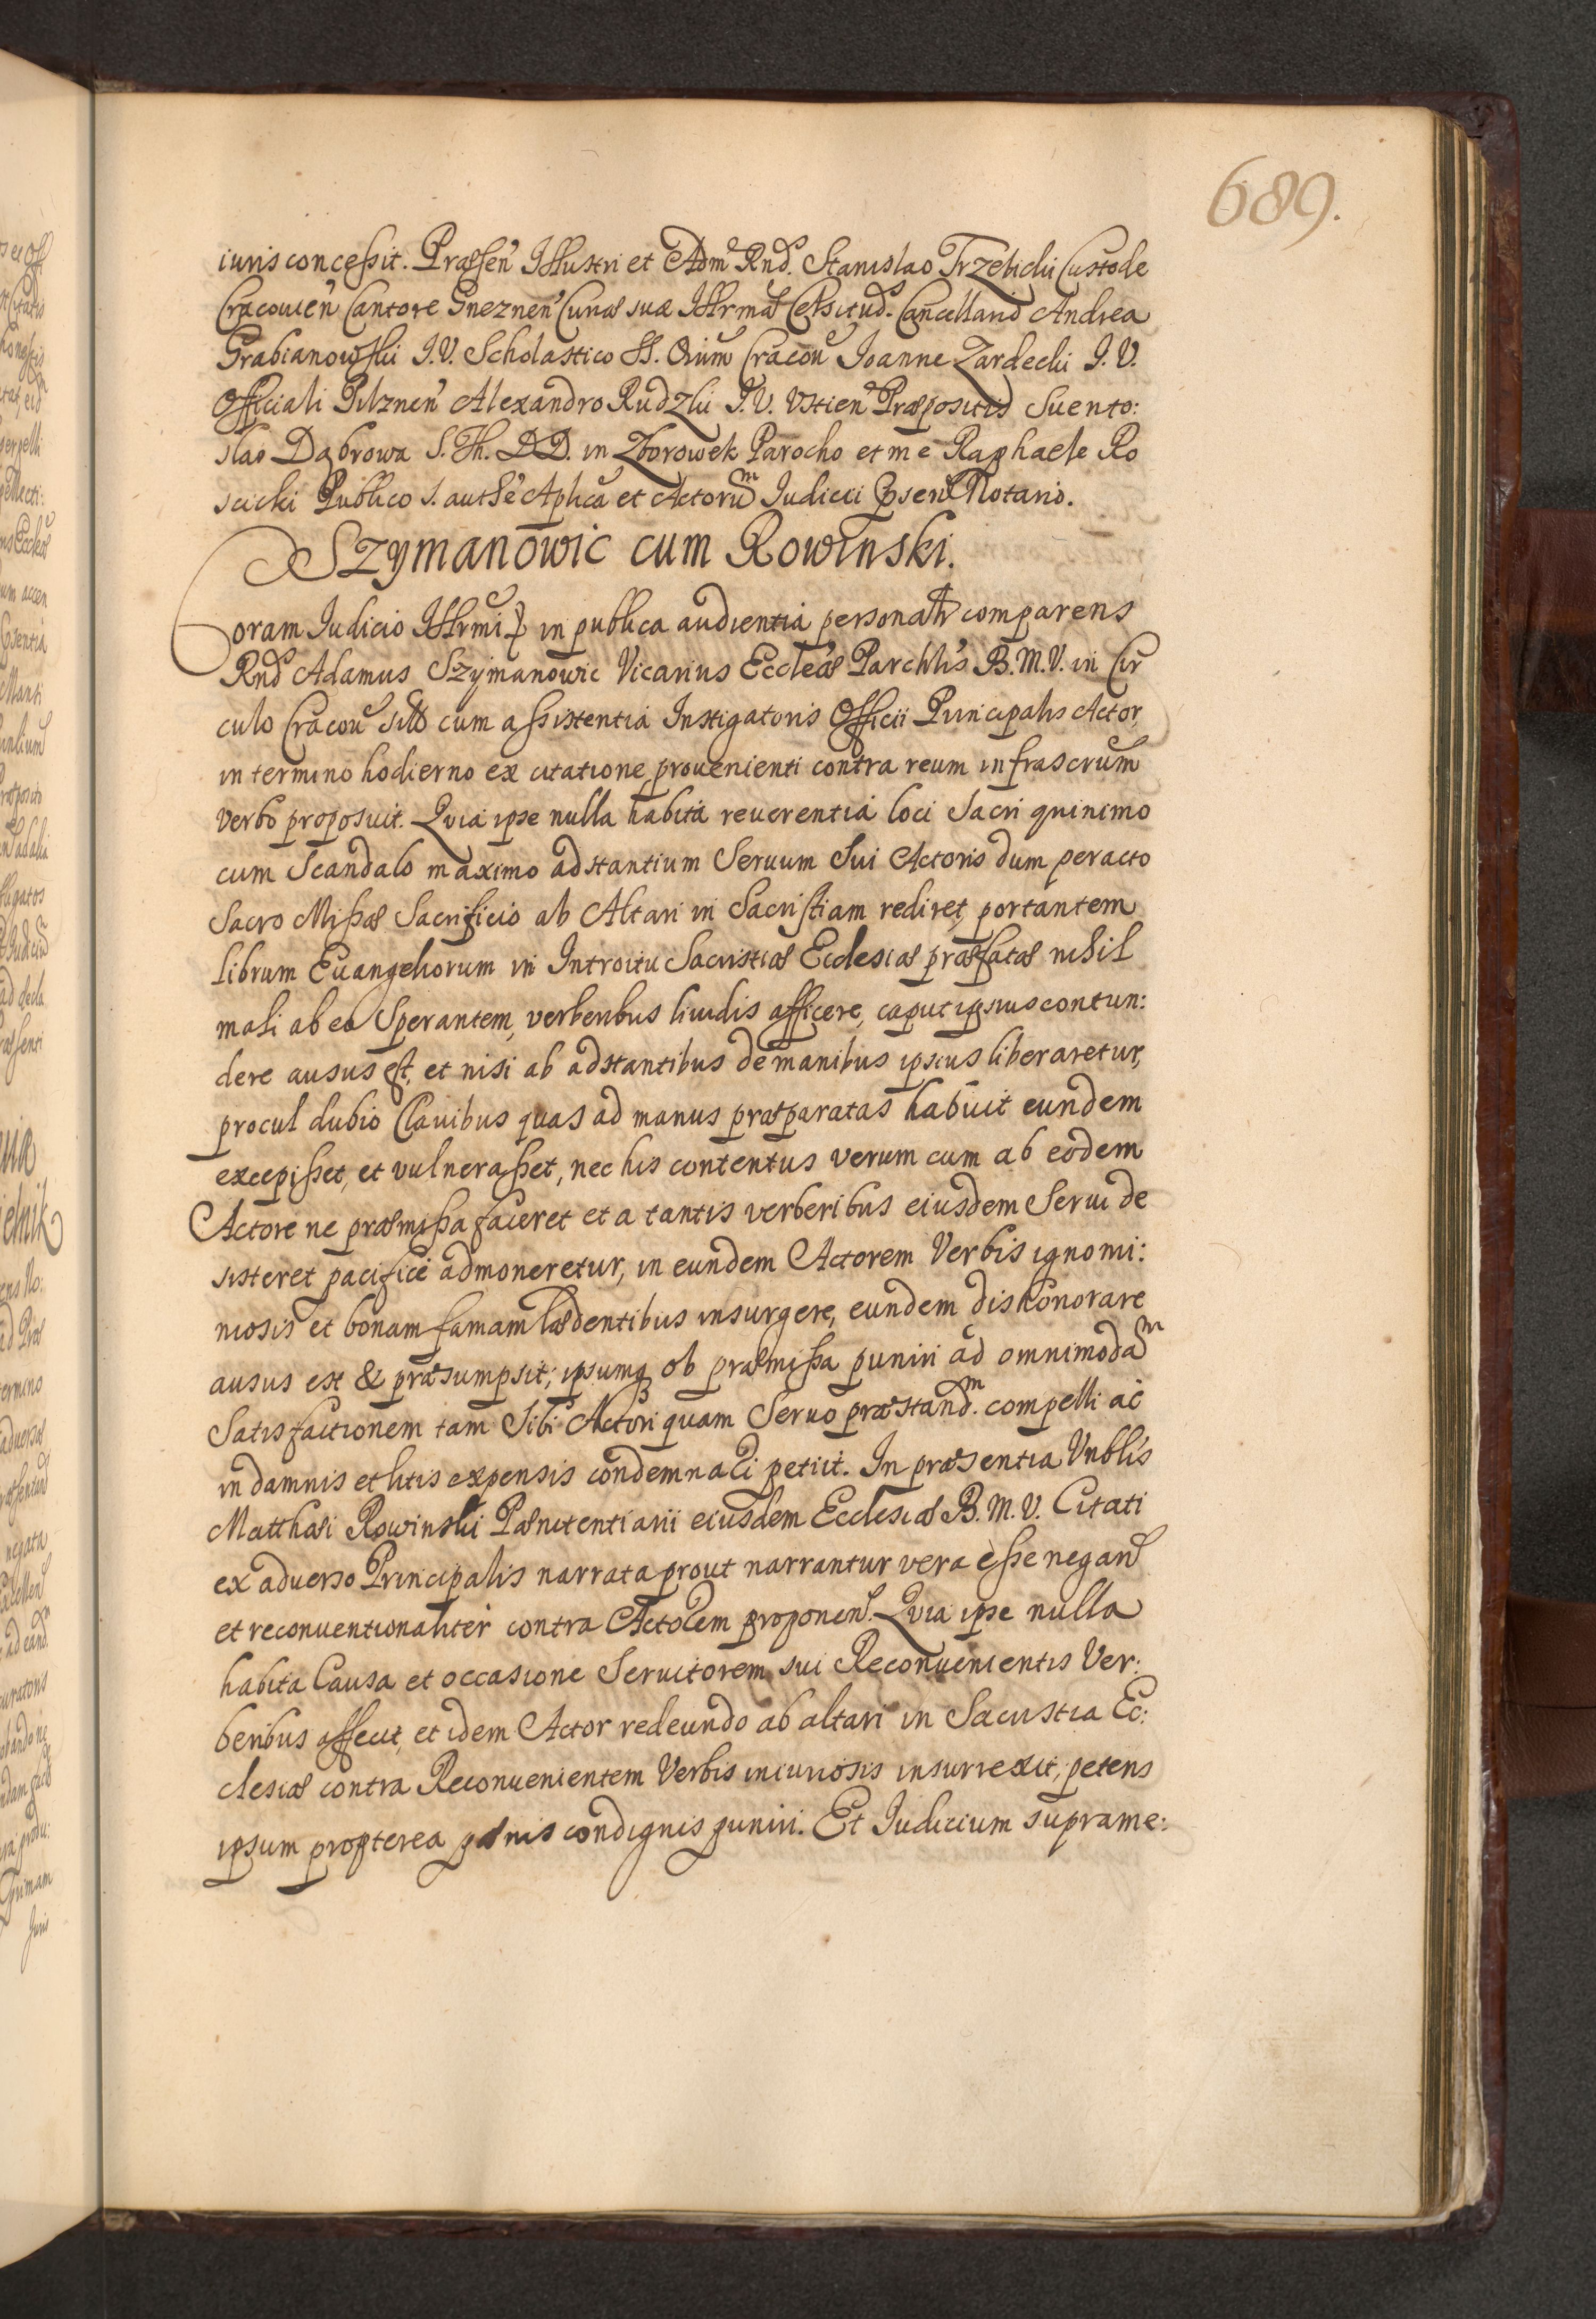 689.
iuris concessit. Præsen̄ Illustri et Adm̄ Rnd. Stanislao Trzebicki Custode
Cracovien̄ Cantore Gneznen̄ Curiæ suæ Illrmæ Celsitud. Cancellario Andrea
Grabianowski I.V. Scholastico SS. Oium̄ Cracou Ioanne Zardecki I. V.
Officiali Pilznen̄ Alexandro Rudzki I. V. Vstien Præpositis Suento:
slao Dąbrowa S. Th. DD. in Zborowek Parocho et me Raphaele Ro
scicki Publico S. autħe Aplica et Actoru͞m Iudicii psen̄ Notario.
Szymanowic cum Rowinski.
Coram Iudicio Illrmi in publica audientia personalr comparens
Rnd Adamus Szymanowic Vicarius Eccleæ Parchlis B. M. V. in Cir
culo Cracou sitto cum assistentia Instigatoris Officii Principalis Actor
in termino hodierno ex citatione prouenienti contra reum infrascrum
verbo proposuit. Quia ipse nulla habita reuerentia loci Sacri quinimo
cum Scandalo maximo adstantium Seruum Sui Actoris dum peracto
Sacro Missæ Sacrificio ab Altari in Sacristiam rediret, portantem
librum Euangeliorum in Introitu Sacristiæ Ecclesiæ præfatæ nihil
mali ab eo Sperantem, verberibus liuidis afficere, caput ipsius contun:
dere ausus est, et nisi ab adstantibus de manibus ipsius liberaretur,
procul dubio Clauibus quas ad manus præparatas habuit eundem
excepisset, et vulnerasset, nec his contentus verum cum ab eodem
Actore ne præmissa faceret et a tantis verberibus eiusdem Serui de
sisteret pacifice admoneretur, in eundem Actorem Verbis ignomi:
niosis et bonam famam lædentibus insurgere, eundem dishonorare
ausus est & præsumpsit; ipsumq ob præmissa puniri ad omnimodam
Satisfactionem tam Sibi Actori quam Seruo præstand. compelli ac
in damnis et litis expensis condemnari petiit. In præsentia Vnblis
Matthæi Rowinski Pænitentiarii eiusdem Ecclesiæ B. M. V. Citati
ex aduerso Principalis narrata prout narrantur vera esse negan
et reconuentionaliter contra Actorem proponen. Quia ipse nulla
habita Causa et occasione Seruitorem sui Reconuenientis Ver:
beribus affecit, et idem Actor redeundo ab altari in Sacristia Ec:
clesiæ contra Reconuenientem Verbis iniuriosis insurrexit, petens
ipsum propterea pænis condignis puniri. Et Iudicium suprame: